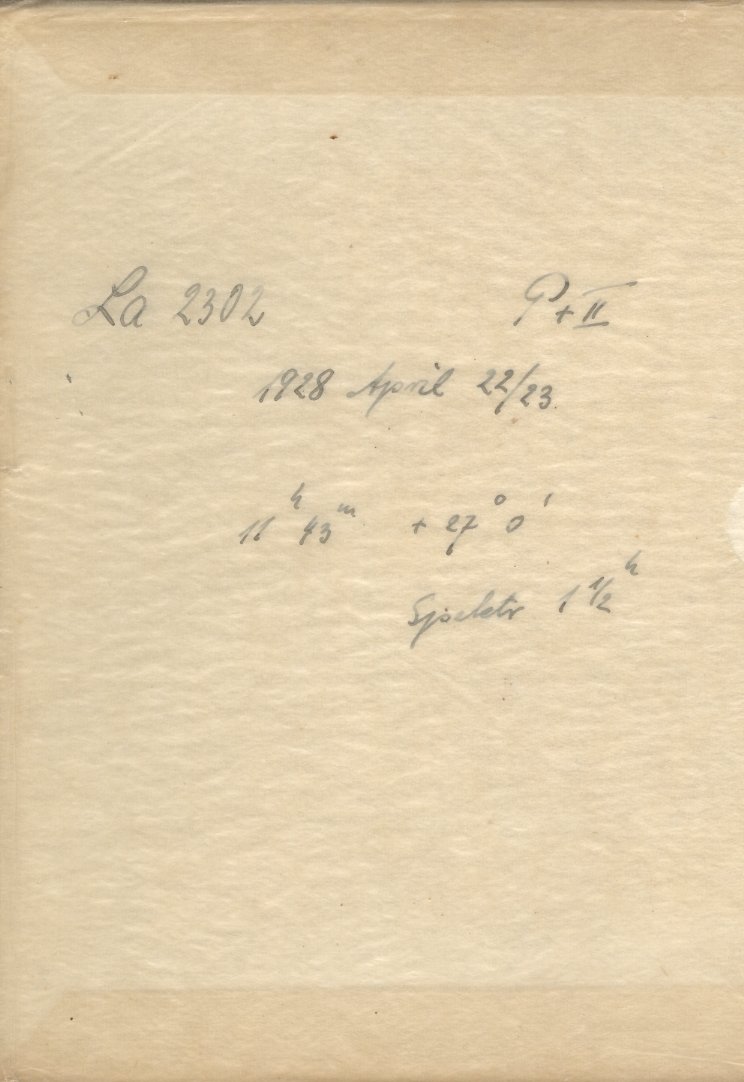 La 2302 P+II
1928 April 22/23.
11ʰ 43ᵐ + 27° 0'
Spektr 1 1/2ʰ